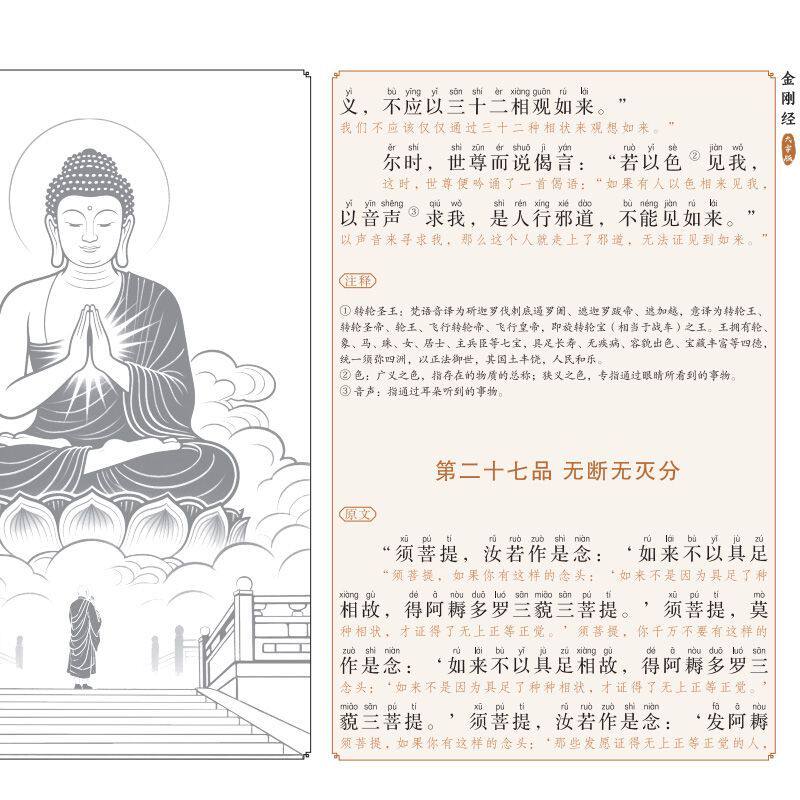 金刚经
大字版
yì bù yīng yǐ sān shí èr xiàng guān rú lái
义，不应以三十二相观如来。”
我们不应该仅仅通过三十二种相状来观想如来。”
ěr shí shì zūn ér shuō jì yán ruò yǐ sè jiàn wǒ
尔时，世尊而说偈言：“若以色②见我，
这时，世尊便吟诵了一首偈语：“如果有人以色相来见我，
yǐ yīn shēng qiú wǒ shì rén xíng xié dào bù néng jiàn rú lái
以音声③求我，是人行邪道，不能见如来。”
以声音来寻求我，那么这个人就走上了邪道，无法证见到如来。”
注释
①转轮圣王：梵语音译为斫迦罗伐剌底遏罗阇、遮迦罗跋帝、遮加越，意译为转轮王、
转轮圣帝、轮王、飞行转轮帝、飞行皇帝，即旋转轮宝（相当于战车）之王。王拥有轮、
象、马、珠、女、居士、主兵臣等七宝，具足长寿、无疾病、容貌出色、宝藏丰富等四德，
统一须弥四洲，以正法御世，其国土丰饶，人民和乐。
②色：广义之色，指存在的物质的总称；狭义之色，专指通过眼睛所看到的事物。
③音声：指通过耳朵听到的事物。
第二十七品 无断无灭分
原文
xū pú tí rǔ ruò zuò shì niàn rú lái bù yǐ jù zú
“须菩提，汝若作是念：‘如来不以具足
“须菩提，如果你有这样的念头：‘如来不是因为具足了种
xiàng gù dé ā nòu duō luó sān miǎo sān pú tí xū pú tí mò
相故，得阿耨多罗三藐三菩提。’须菩提，莫
种相状，才证得了无上正等正觉。’须菩提，你千万不要有这样的
zuò shì niàn rú lái bù yǐ jù zú xiàng gù dé ā nòu duō luó sān
作是念：‘如来不以具足相故，得阿耨多罗三
念头：‘如来不是因为具足了种种相状，才证得了无上正等正觉。’
miǎo sān pú tí xū pú tí rǔ ruò zuò shì niàn fā ā nòu
藐三菩提。’须菩提，汝若作是念：‘发阿耨
须菩提，如果你有这样的念头：‘那些发愿证得无上正等正觉的人，